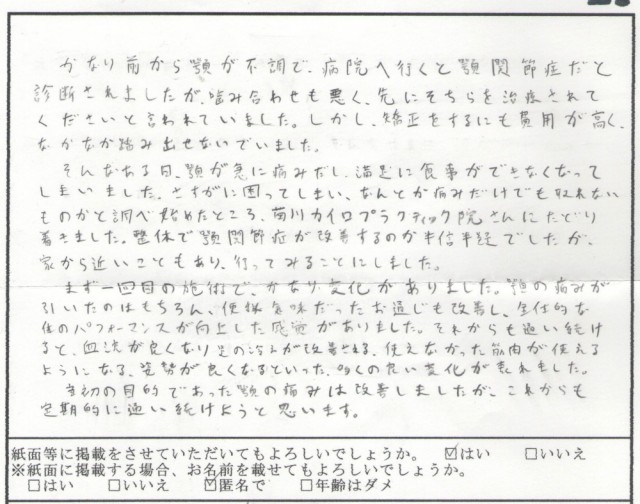 かなり前から顎が不調で、病院へ行くと顎関節症だと
診断されましたが、噛み合わせも悪く、先にそちらを治療されて
くださいと言われていました。しかし、矯正をするにも費用が高く、
なかなか踏み出せないでいました。
そんなある日、顎が急に痛みだし、満足に食事ができなくなって
しまいました。さすがに困ってしまい、なんとか痛みだけでも取れない
ものかと調べ始めたところ、菊川カイロプラクティック院さんにたどり
着きました。整体で顎関節症が改善するのか半信半疑でしたが、
家から近いこともあり、行ってみることにしました。
まず一回目の施術で、かなり変化がありました。顎の痛みが
引いたのはもちろん、便秘気味だったお通じも改善し、全体的な
体のパフォーマンスが向上した感覚がありました。それからも通い続け
ると、血流が良くなり足の冷えが改善される、使えなかった筋肉が使える
ようになる、姿勢が良くなるといった、多くの良い変化が表れました。
当初の目的であった顎の痛みは改善しましたが、これからも
定期的に通い続けようと思います。
紙面等に掲載をさせていただいてもよろしいでしょうか。 ☑はい □いいえ
※紙面に掲載する場合、お名前を載せてもよろしいでしょうか。
□はい □いいえ ☑匿名で □年齢はダメ